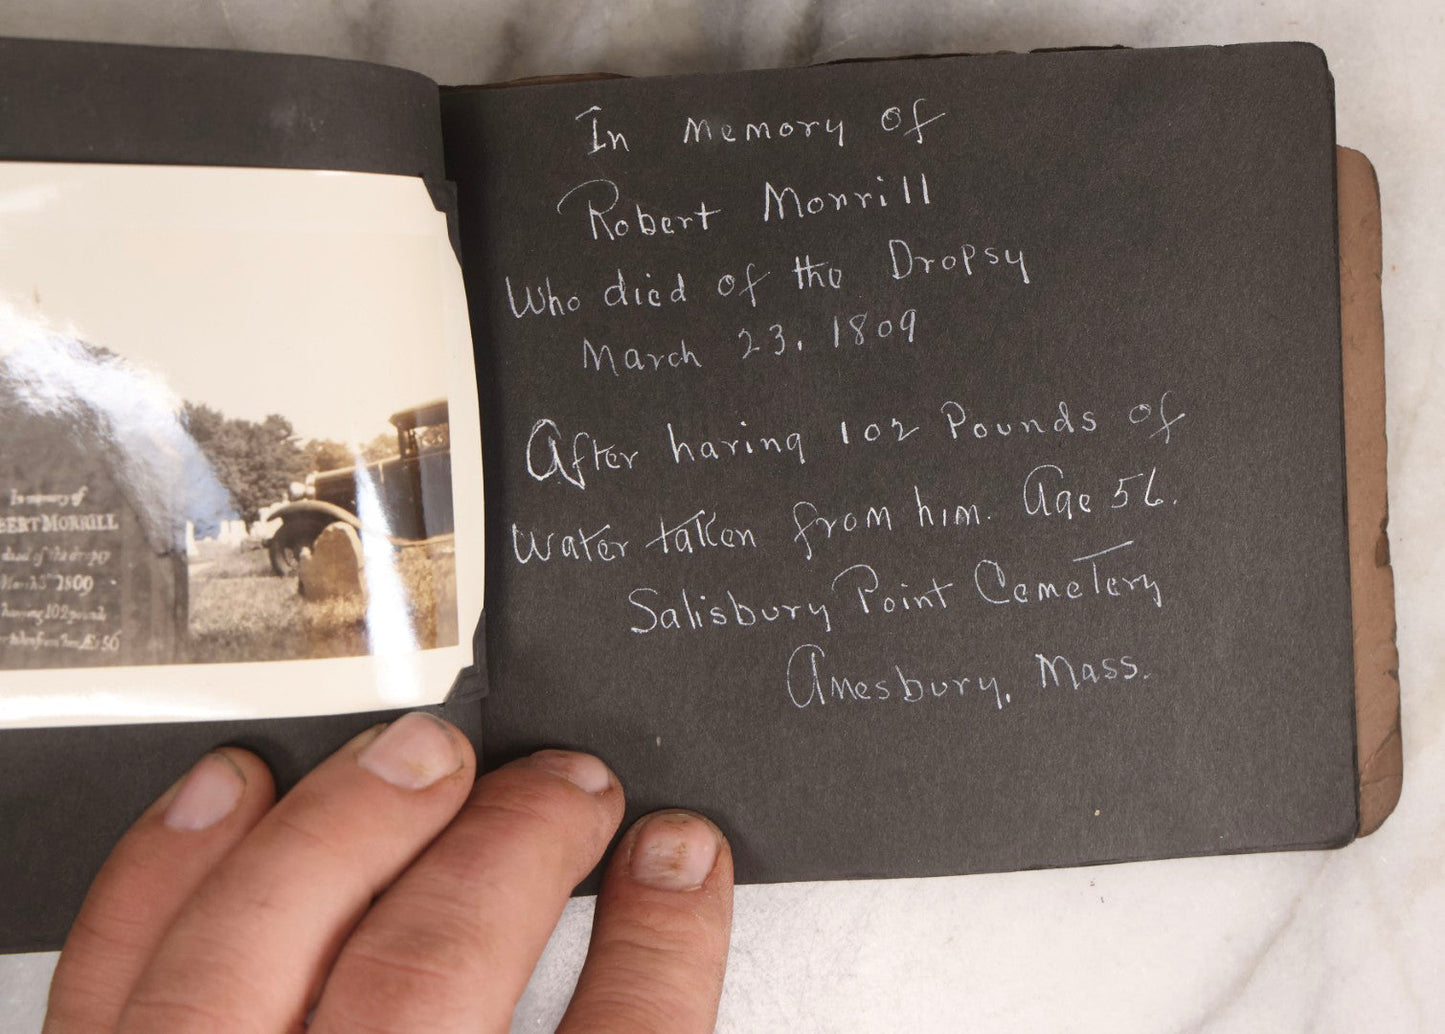 In memory of
BERT MORRILL
died of the dropsy
1809
having 102 pounds
56
In memory of
Robert Morrill
Who died of the Dropsy
March 23, 1809
After having 102 Pounds of
Water taken from him. Age 56.
Salisbury Point Cemetery
Amesbury, Mass.